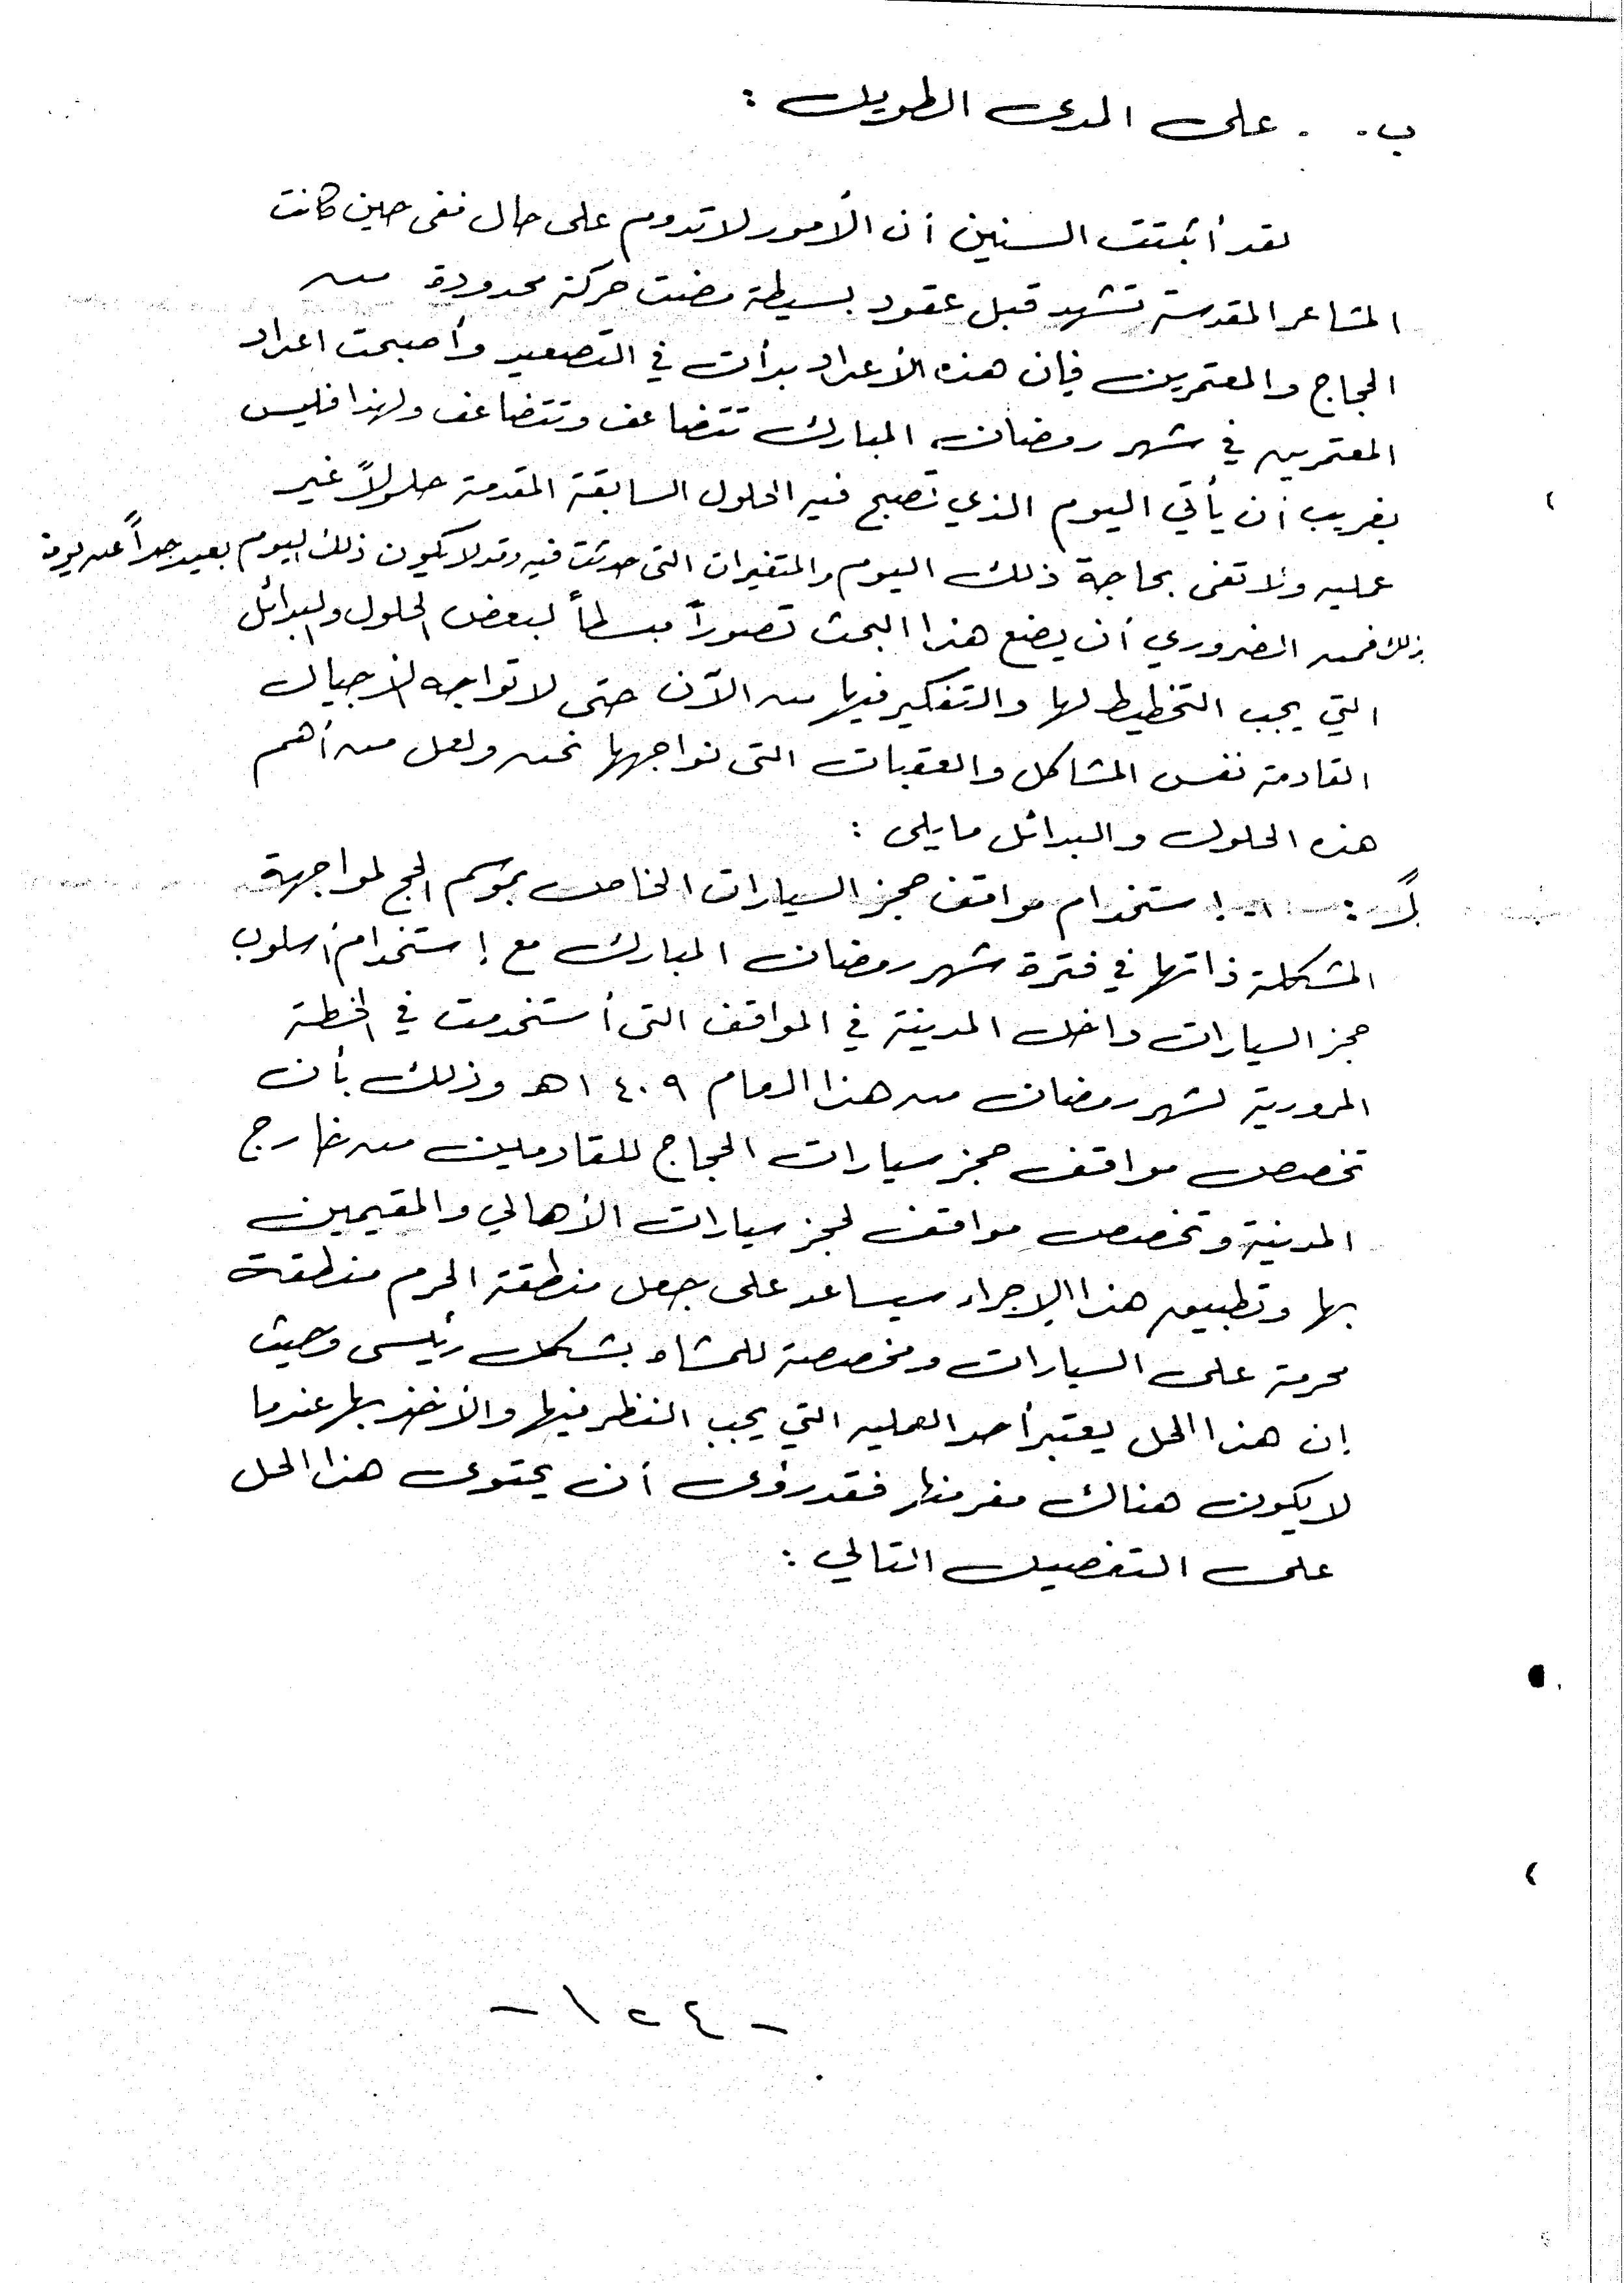 ب . . على المدى الطويل :
لقد أثبتت السنين أن الأمور لا تدوم على حال ففى حين كانت
المشاعر المقدسة تشهد قبل عقود بسيطة مضت حركة محدودة من
الحجاج والمعتمرين فإن هذه الأعداد بدأت في التصعيد وأصبحت اعداد
المعتمرين في شهر رمضان المبارك تتضاعف وتتضاعف ولهذا فليس
بغريب أن يأتي اليوم الذي تصبح فيه الحلول السابقة المقدمة حلولاً غير
عمليه ولا تفى بحاجة ذلك اليوم والمتغيرات التى حدثت فيه وقد لا يكون ذلك اليوم بعيد جداً عن يومنا
ذلك فمن الضروري أن يضع هذا البحث تصوراً مبسطاً لبعض الحلول والبدائل
التي يجب التخطيط لها والتفكير فيها من الآن حتى لا تواجه الأجيال
القادمة نفس المشاكل والعقبات التى نواجهها نحن ولعل من أهم
هذه الحلول والبدائل ما يلى :
إستخدام مواقف حجز السيارات الخاصه بموسم الحج لمواجهة
المشكلة ذاتها في فترة شهر رمضان المبارك مع إستخدام أسلوب
حجز السيارات داخل المدينة في المواقف التى أستخدمت في الخطة
المرورية لشهر رمضان من هذا العام ١٤٠٩ هـ وذلك بأن
تخصص مواقف حجز سيارات الحجاج للقادمين من خارج
المدينة وتخصص مواقف لحجز سيارات الأهالي والمقيمين
بها وتطبيق هذا الإجراء سيساعد على جعل منطقة الحرم منطقة
محرمة على السيارات ومخصصة للمشاه بشكل رئيسى وحيث
إن هذا الحل يعتبر أحد العمليه التي يجب النظر فيها والأخذ بها عندما
لا يكون هناك مفر منها فقد رؤى أن يحتوى هذا الحل
على التفصيل التالي :
- ١٢٤ -